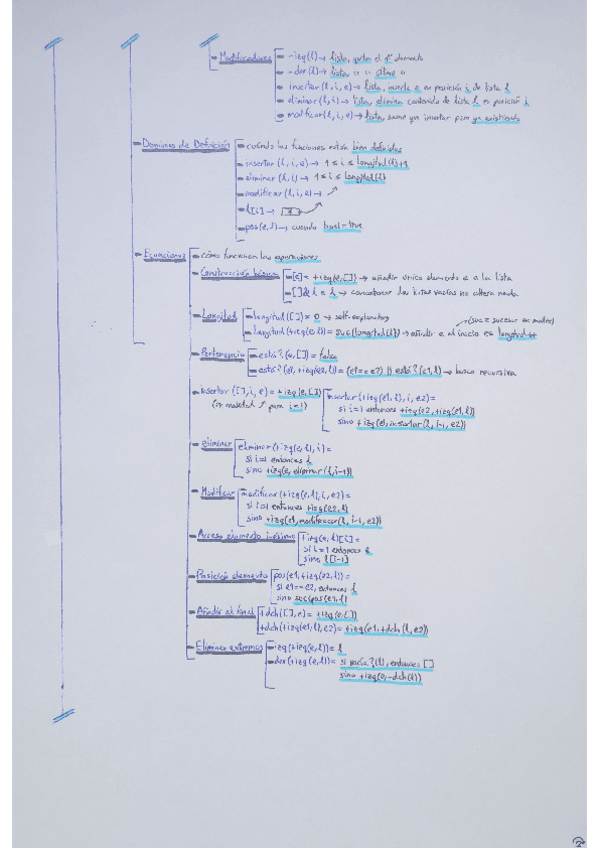 Modificadoras
-izq(l) → lista, quita el 1º elemento
-dch(l) → lista, " " último "
insertar(l, i, e) → lista, inserta e en posición i de lista l
eliminar(l, i) → lista, elimina contenido de lista l en posición i
modificar(l, i, e) → lista, same que insertar pero ya existiente
Dominios de Definición
cuándo las funciones están bien definidas
insertar(l, i, e) → 1 ≤ i ≤ longitud(l)+1
eliminar(l, i) → 1 ≤ i ≤ longitud(l)
modificar(l, i, e) →
l[i] →
pos(e, l) → cuando bool = true
Ecuaciones
cómo funcionan las operaciones
Construcción básica
[e] = +izq(e, []) → añadir único elemento e a la lista
[] & l = l → concatenar dos listas vacías no altera nada
Longitud
longitud([]) = 0 → self-explanatory
(suc = sucesor en madre)
longitud(+izq(e, l)) = suc(longitud(l)) → añadir e al inicio es longitud++
Pertenencia
está?(e, []) = false
está?(e1, +izq(e2, l)) = (e1 == e2) || está?(e1, l) → busca recursiva
insertar([], i, e) = +izq(e, [])
para i=1)
insertar(+izq(e1, l), i, e2) =
si i=1 entonces +izq(e2, +izq(e1, l))
sino +izq(e1, insertar(l, i-1, e2))
eliminar
eliminar(+izq(e, l), i) =
si i=1 entonces l
sino +izq(e, eliminar(l, i-1))
Modificar
modificar(+izq(e1, l), i, e2) =
si i=1 entonces +izq(e2, l)
sino +izq(e1, modificar(l, i-1, e2))
Acceso elemento i-ésimo
+izq(e, l)[i] =
si i=1 entonces e
sino l[i-1]
Posición elemento
pos(e1, +izq(e2, l)) =
si e1 == e2, entonces 1
sino suc(pos(e1, l))
Añadir al final
+dch([], e) = +izq(e, [])
+dch(+izq(e1, l), e2) = +izq(e1, +dch(l, e2))
Eliminar extremos
-izq(+izq(e, l)) = l
-dch(+izq(e, l)) = si vacía?(l), entonces []
sino +izq(e, -dch(l))
2